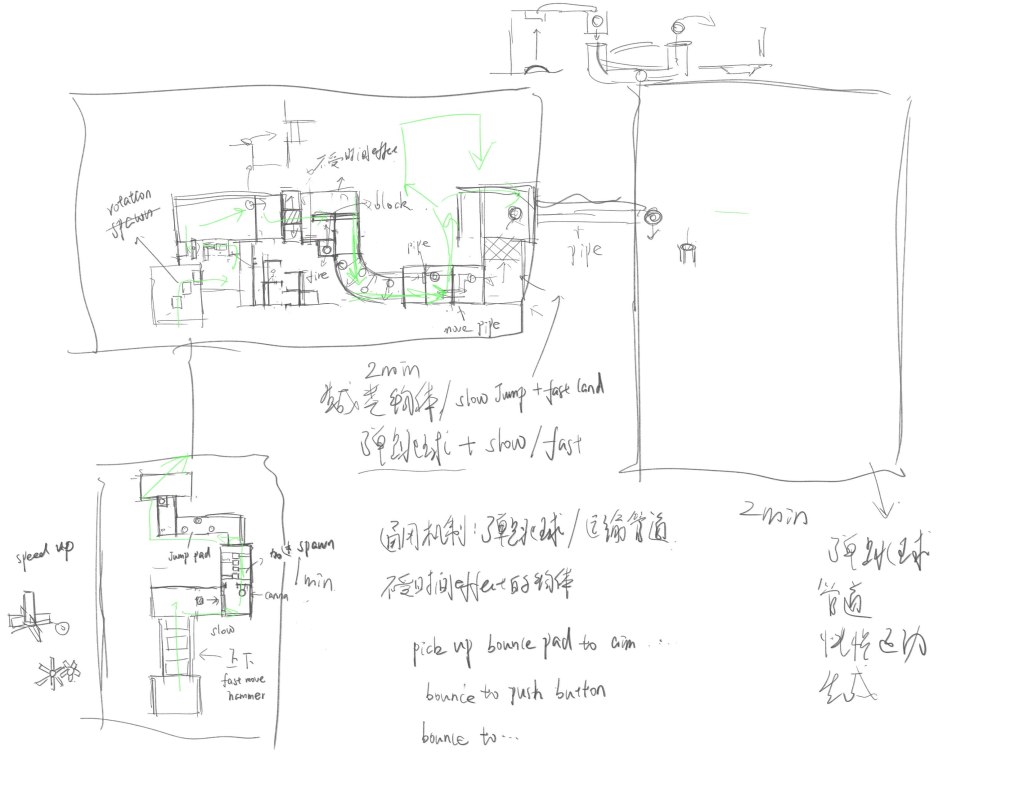 不受时间effec
rotation
spawn
block
pipe
fire
move pipe
+
pipe
2min
物体/slow Jump + fast land
弹跳球 + slow/fast
2min
speed up
Jump pad
spawn
1min
slow
上下
fast move
hammer
通用机制:弹跳球/运输管道
不受时间effect的物体
pick up bounce pad to aim ...
bounce to push button
bounce to...
弹跳球
管道
惯性运动
生成